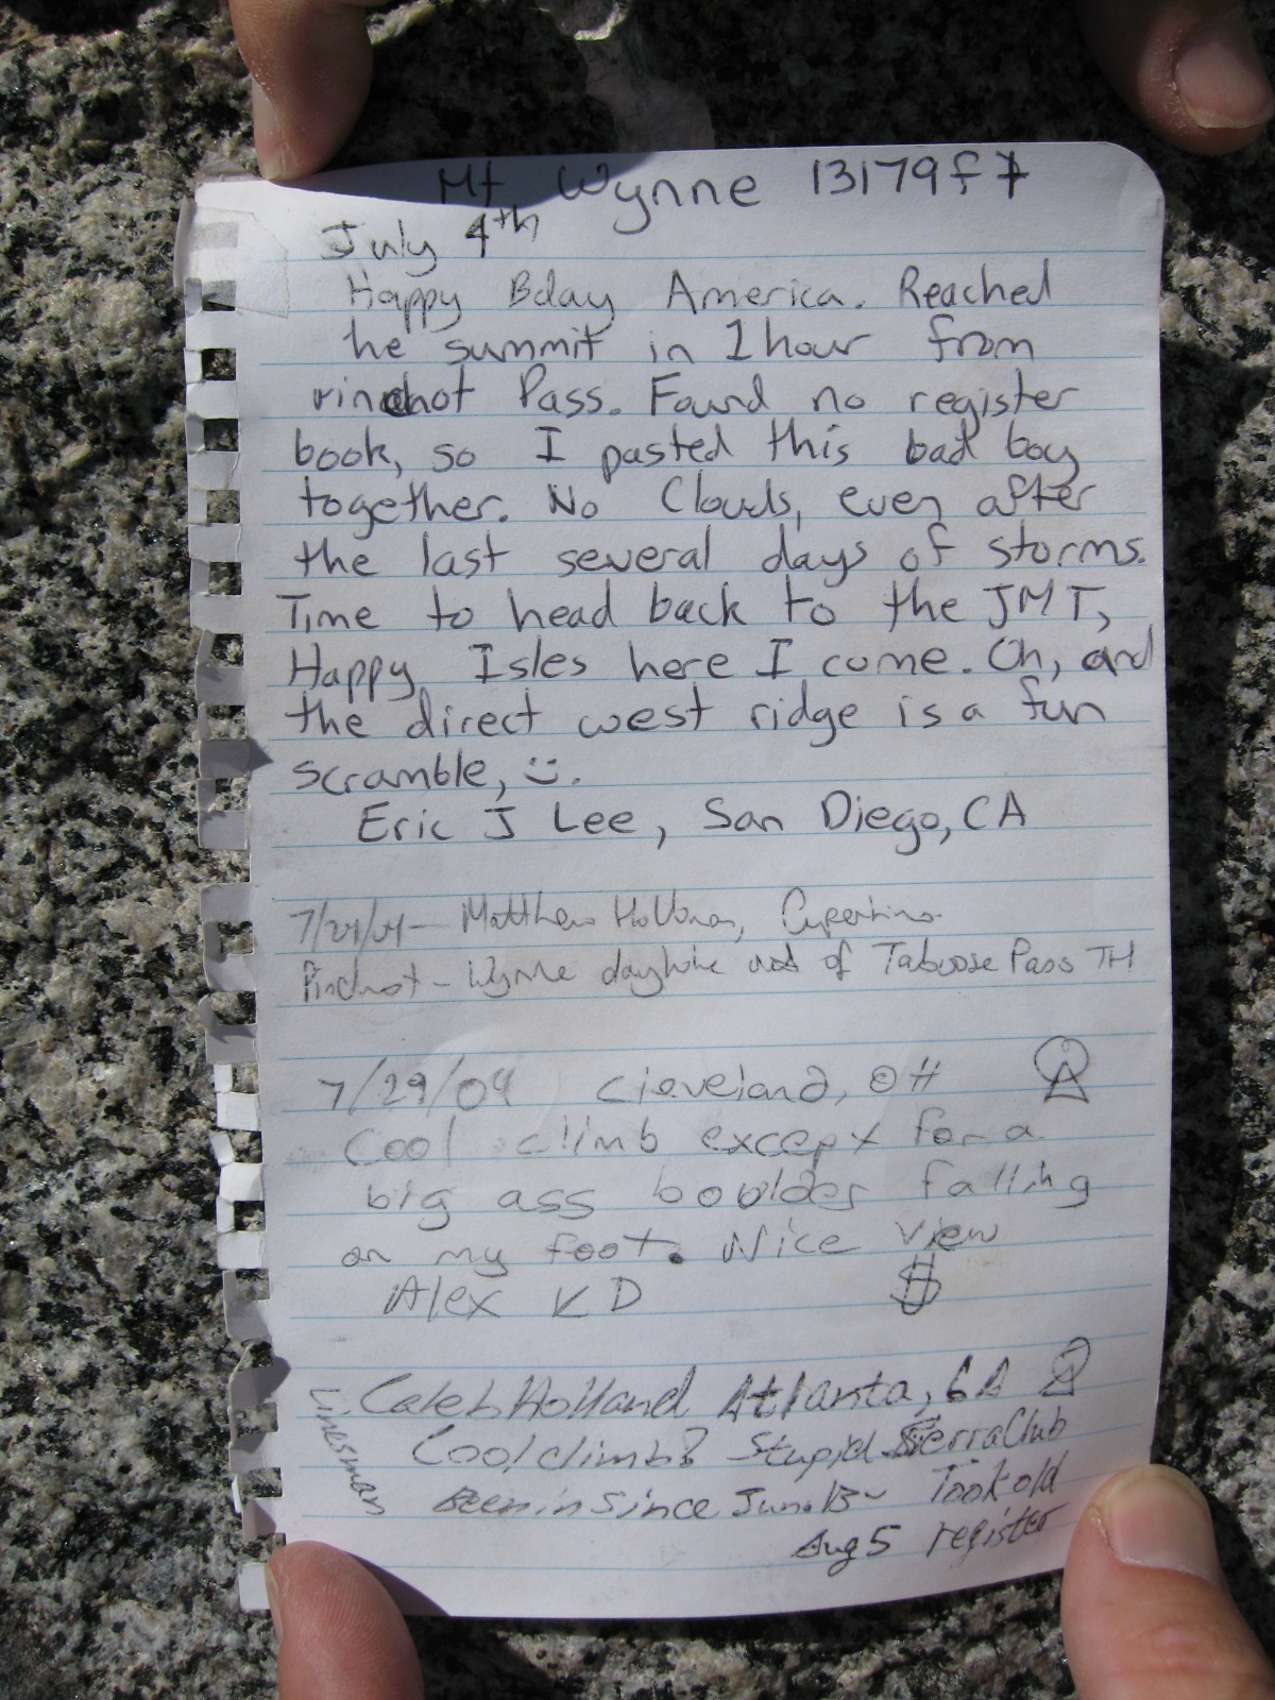 Mt Wynne 13179ft
July 4th
Happy Bday America. Reached
he summit in 1 hour from
rinchot Pass. Found no register
book, so I pasted this bad boy
together. No Clouds, even after
the last several days of storms.
Time to head back to the JMT,
Happy Isles here I come. Oh, and
the direct west ridge is a fun
scramble, :).
Eric J Lee, San Diego, CA
Matthew Cupertino
Pinchot - Wynne dayhike out of Taboose Pass TH
7/29/04 Cleveland, OH
Cool climb except for a
big ass boulder falling
on my foot. Nice view
Alex V D
Caleb Holland Atlanta, GA
Linesman
Cool climb? Stupid Sierra Club
Been in Since Jun. 13~ Took old
Aug 5 register